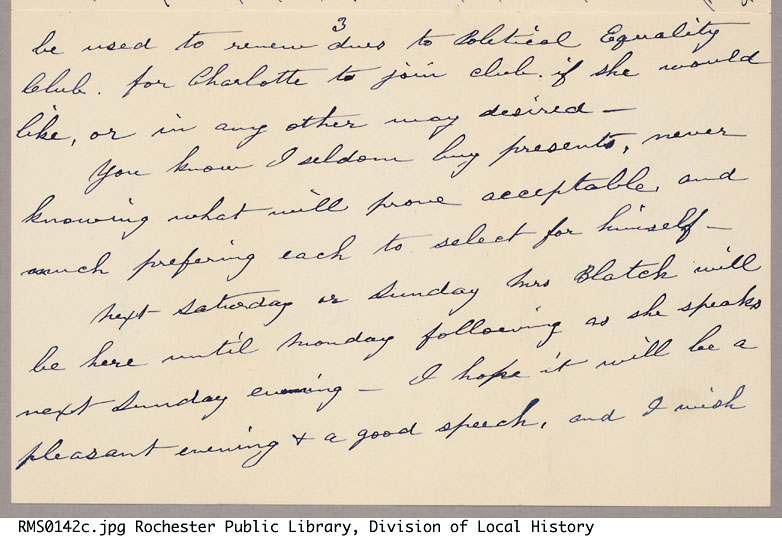 3
be used to renew dues to Political Equality
Club. for Charlotte to join club. if she would
like, or in any other may desired —
You know I seldom buy presents, never
knowing what will prove acceptable, and
much prefering each to select for himself —
Next Saturday or Sunday Mrs Blatch will
be here until Monday following as she speaks
next Sunday evening — I hope it will be a
pleasant evening & a good speech, and I wish
RMS0142c.jpg Rochester Public Library, Division of Local History